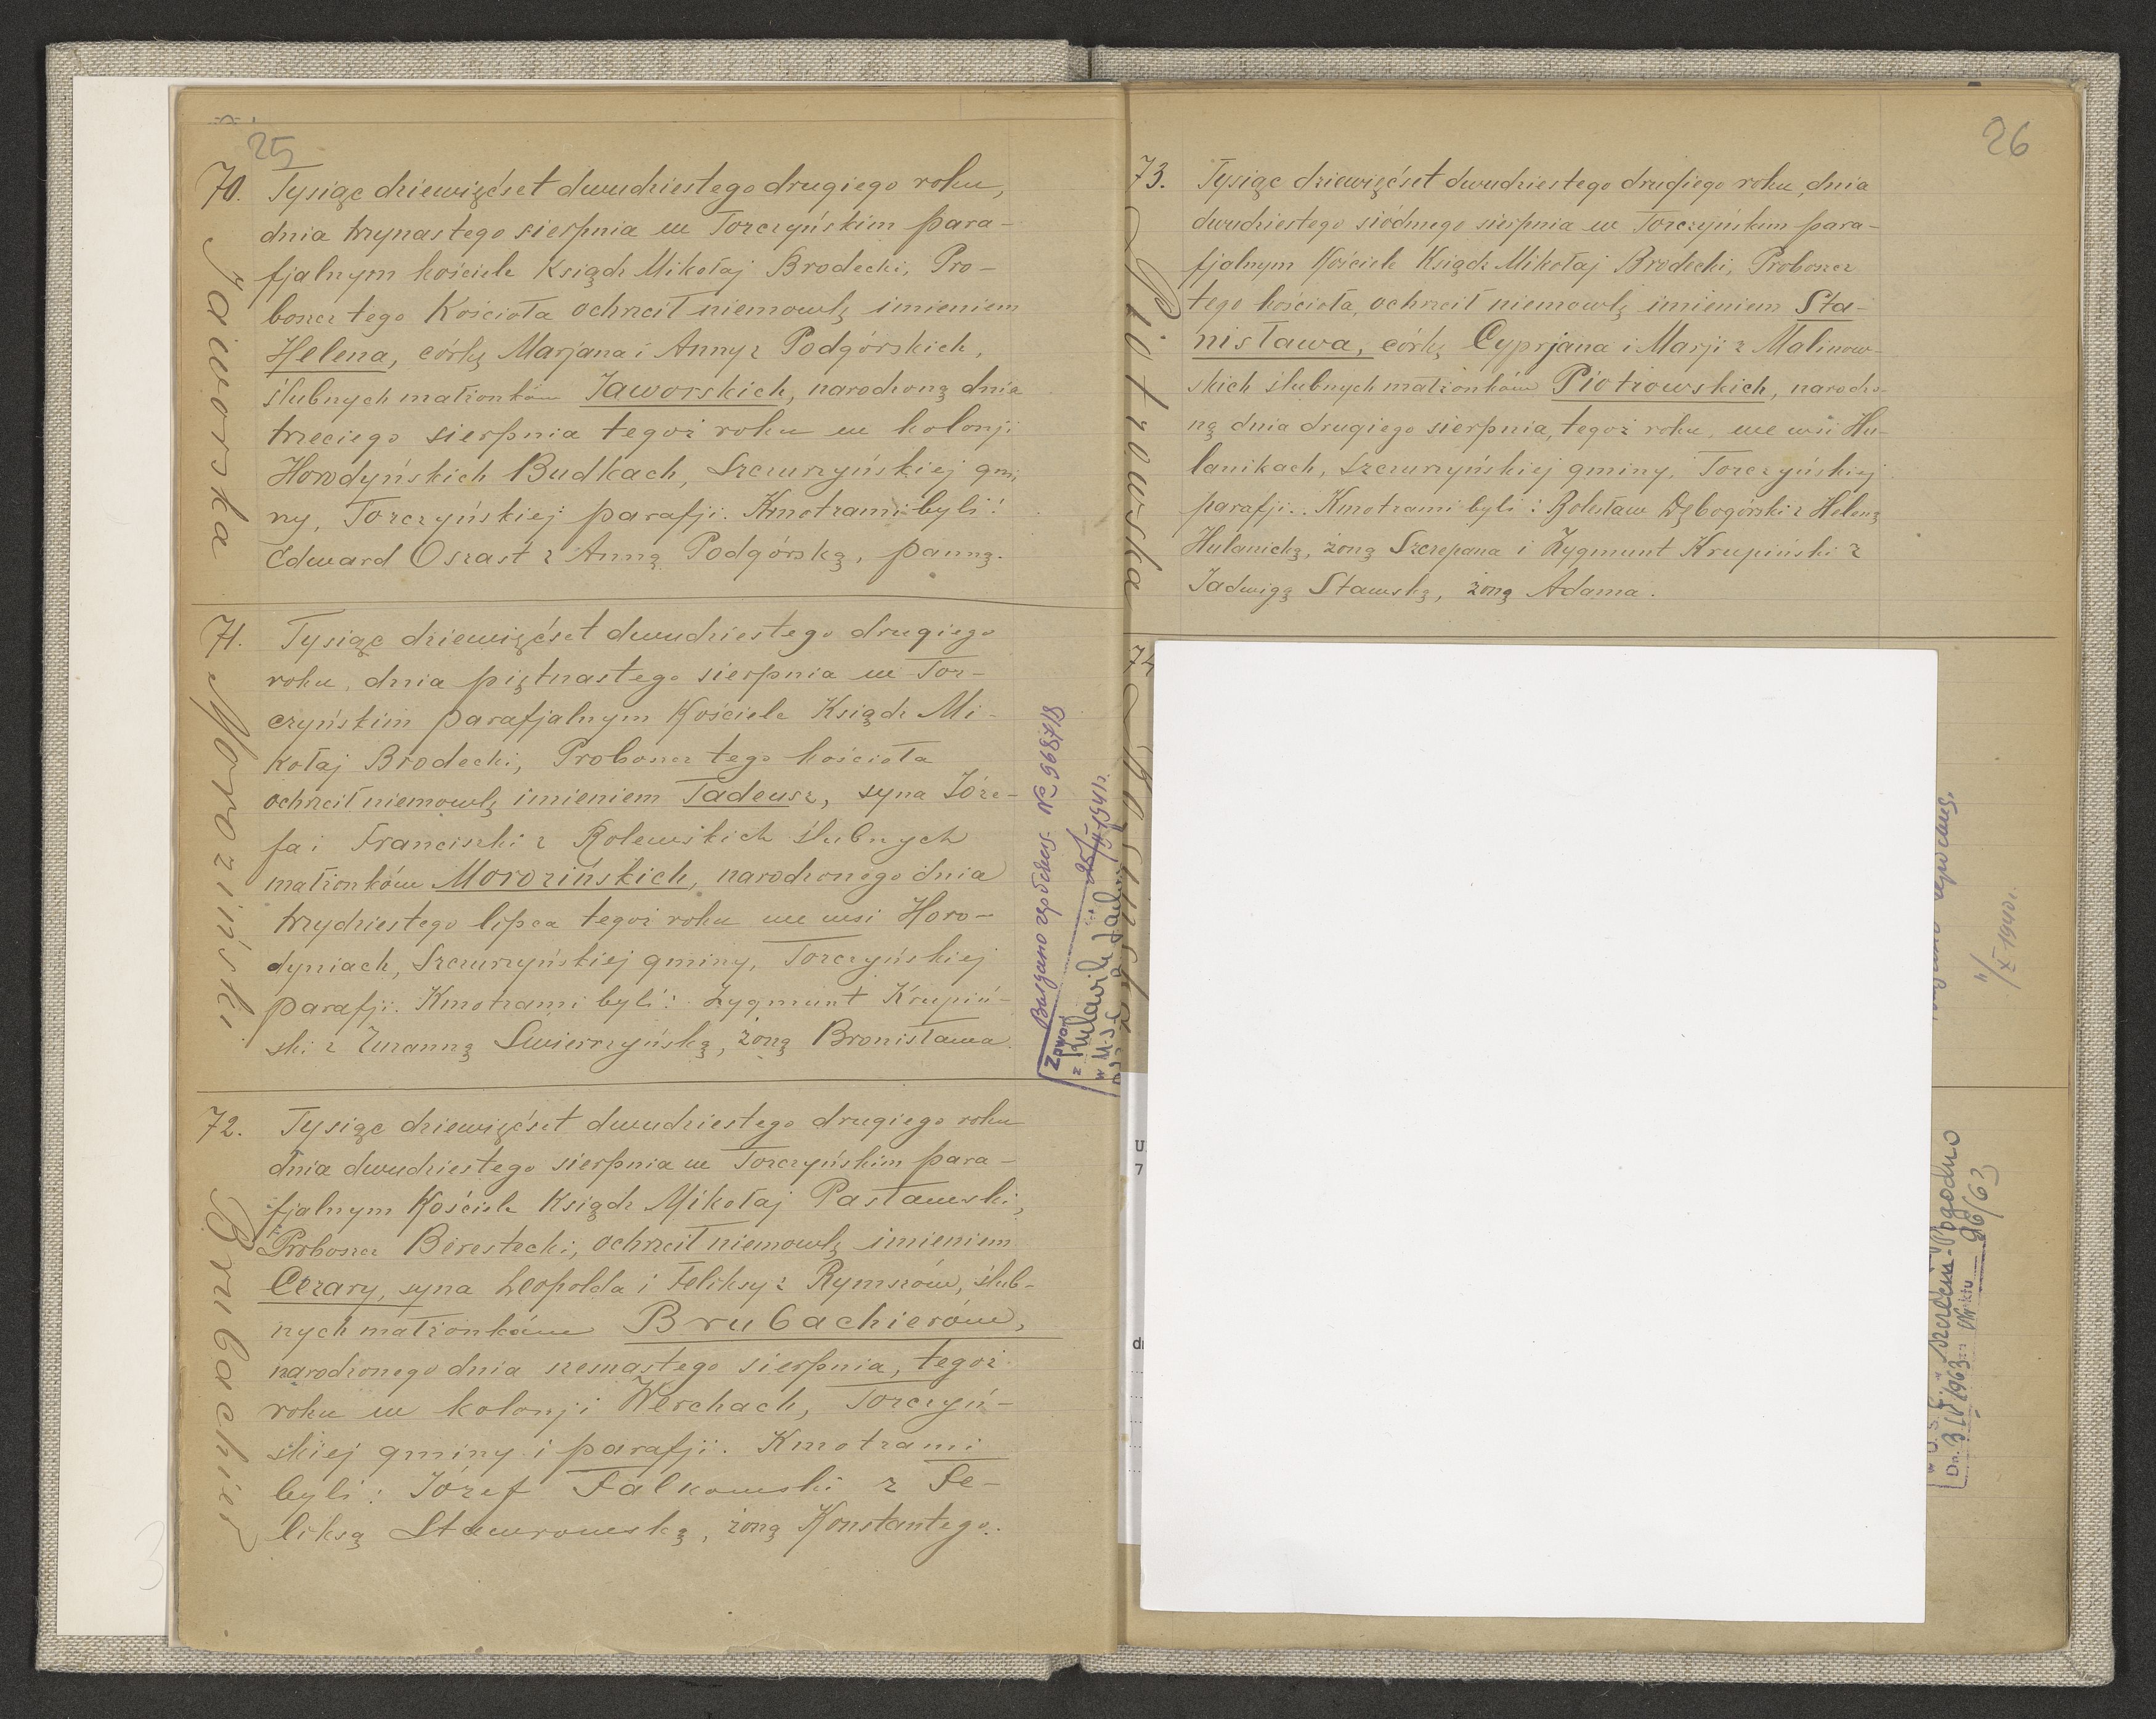 25
70.
Jaworska
Tysiąc dziewięćset dwudziestego drugiego roku,
dnia trzynastego sierpnia w Torczyńskim para-
fjalnym kościele Ksiądz Mikołaj Brodecki, Pro-
boszcz tego Kościoła ochrzcił niemowlę imieniem
Helena, córkę Marjana i Anny z Podgórskich,
ślubnych małżonków Jaworskich, narodzoną dnia
trzeciego sierpnia tegoż roku w kolonji
Horodyńskich Budkach, Szczurzyńskiej gmi
ny, Torczyńskiej parafji. Kmotrami byli:
Edward Oszast z Anną Podgórską, panną.
71.
Moroziński
Tysiąc dziewięćset dwudziestego drugiego
roku, dnia piętnastego sierpnia w Tor-
czyńskim parafjalnym Kościele Ksiądz Mi-
kołaj Brodecki, Proboszcz tego kościoła
ochrzcił niemowlę imieniem Tadeusz, syna Józe-
fa i Franciszki z Rolewskich ślubnych
małżonków Morozińskich, narodzonego dnia
trzydziestego lipca tegoż roku we wsi Horo-
dyniach, Szczurzyńskiej gminy, Torczyńskiej
parafji. Kmotrami byli: Zygmunt Krupiń-
ski z Zuzanną Swierczyńską, żoną Bronisława.
72.
Brubachier
Tysiąc dziewięćset dwudziestego drugiego roku
dnia dwudziestego sierpnia w Torczyńskim para-
fjalnym Kościele Ksiądz Mikołaj Pasławski,
Proboszcz Berestecki, ochrzcił niemowlę imieniem
Cezary, syna Leopolda i Feliksy z Rymszów, ślub-
nych małżonków Brubachierów,
narodzonego dnia szesnastego sierpnia, tegoż
roku w kolonji Werchach, Torczyń-
skiej gminy i parafji. Kmotrami
byli: Józef Falkowski z Fe-
liksą Stawrowską, żoną Konstantego.
№ 968/18
Zawar
z
w U.S.C.
26
73.
Piotrowska
Tysiąc dziewięćset dwudziestego drugiego roku, dnia
dwudziestego siódmego sierpnia w Torczyńskim para-
fjalnym Kościele Ksiądz Mikołaj Brodecki, Proboszcz
tego kościoła, ochrzcił niemowlę imieniem Sta-
nisława, córkę Cyprjana i Marji z Malinow-
skich ślubnych małżonków Piotrowskich, narodzo-
ną dnia drugiego sierpnia, tegoż roku, we wsi Hu-
lanikach, Szczurzyńskiej gminy, Torczyńskiej
parafji. Kmotrami byli: Bolesław Dębogórski z Heleną
Hulanicką, żoną Szczepana i Zygmunt Krupiński z
Jadwigą Sławską, żoną Adama.
74
X 1940 r.
w U.S.C. Szczecin-Pogodno
Dn. 3 IV 1963 Nr aktu 96/63